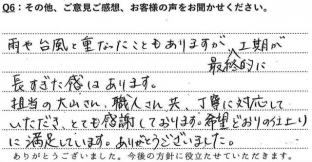 Q6：その他、ご意見ご感想、お客様の声をお聞かせください。
雨や台風と重なったこともありますが、最終的に工期が
長すぎた感はあります。
担当の大山さん、職人さん共、丁寧に対応して
いただき、とても感謝しております。希望どおりの仕上り
に満足しています。ありがとうございました。
ありがとうございました。今後の方針に役立たせていただきます。